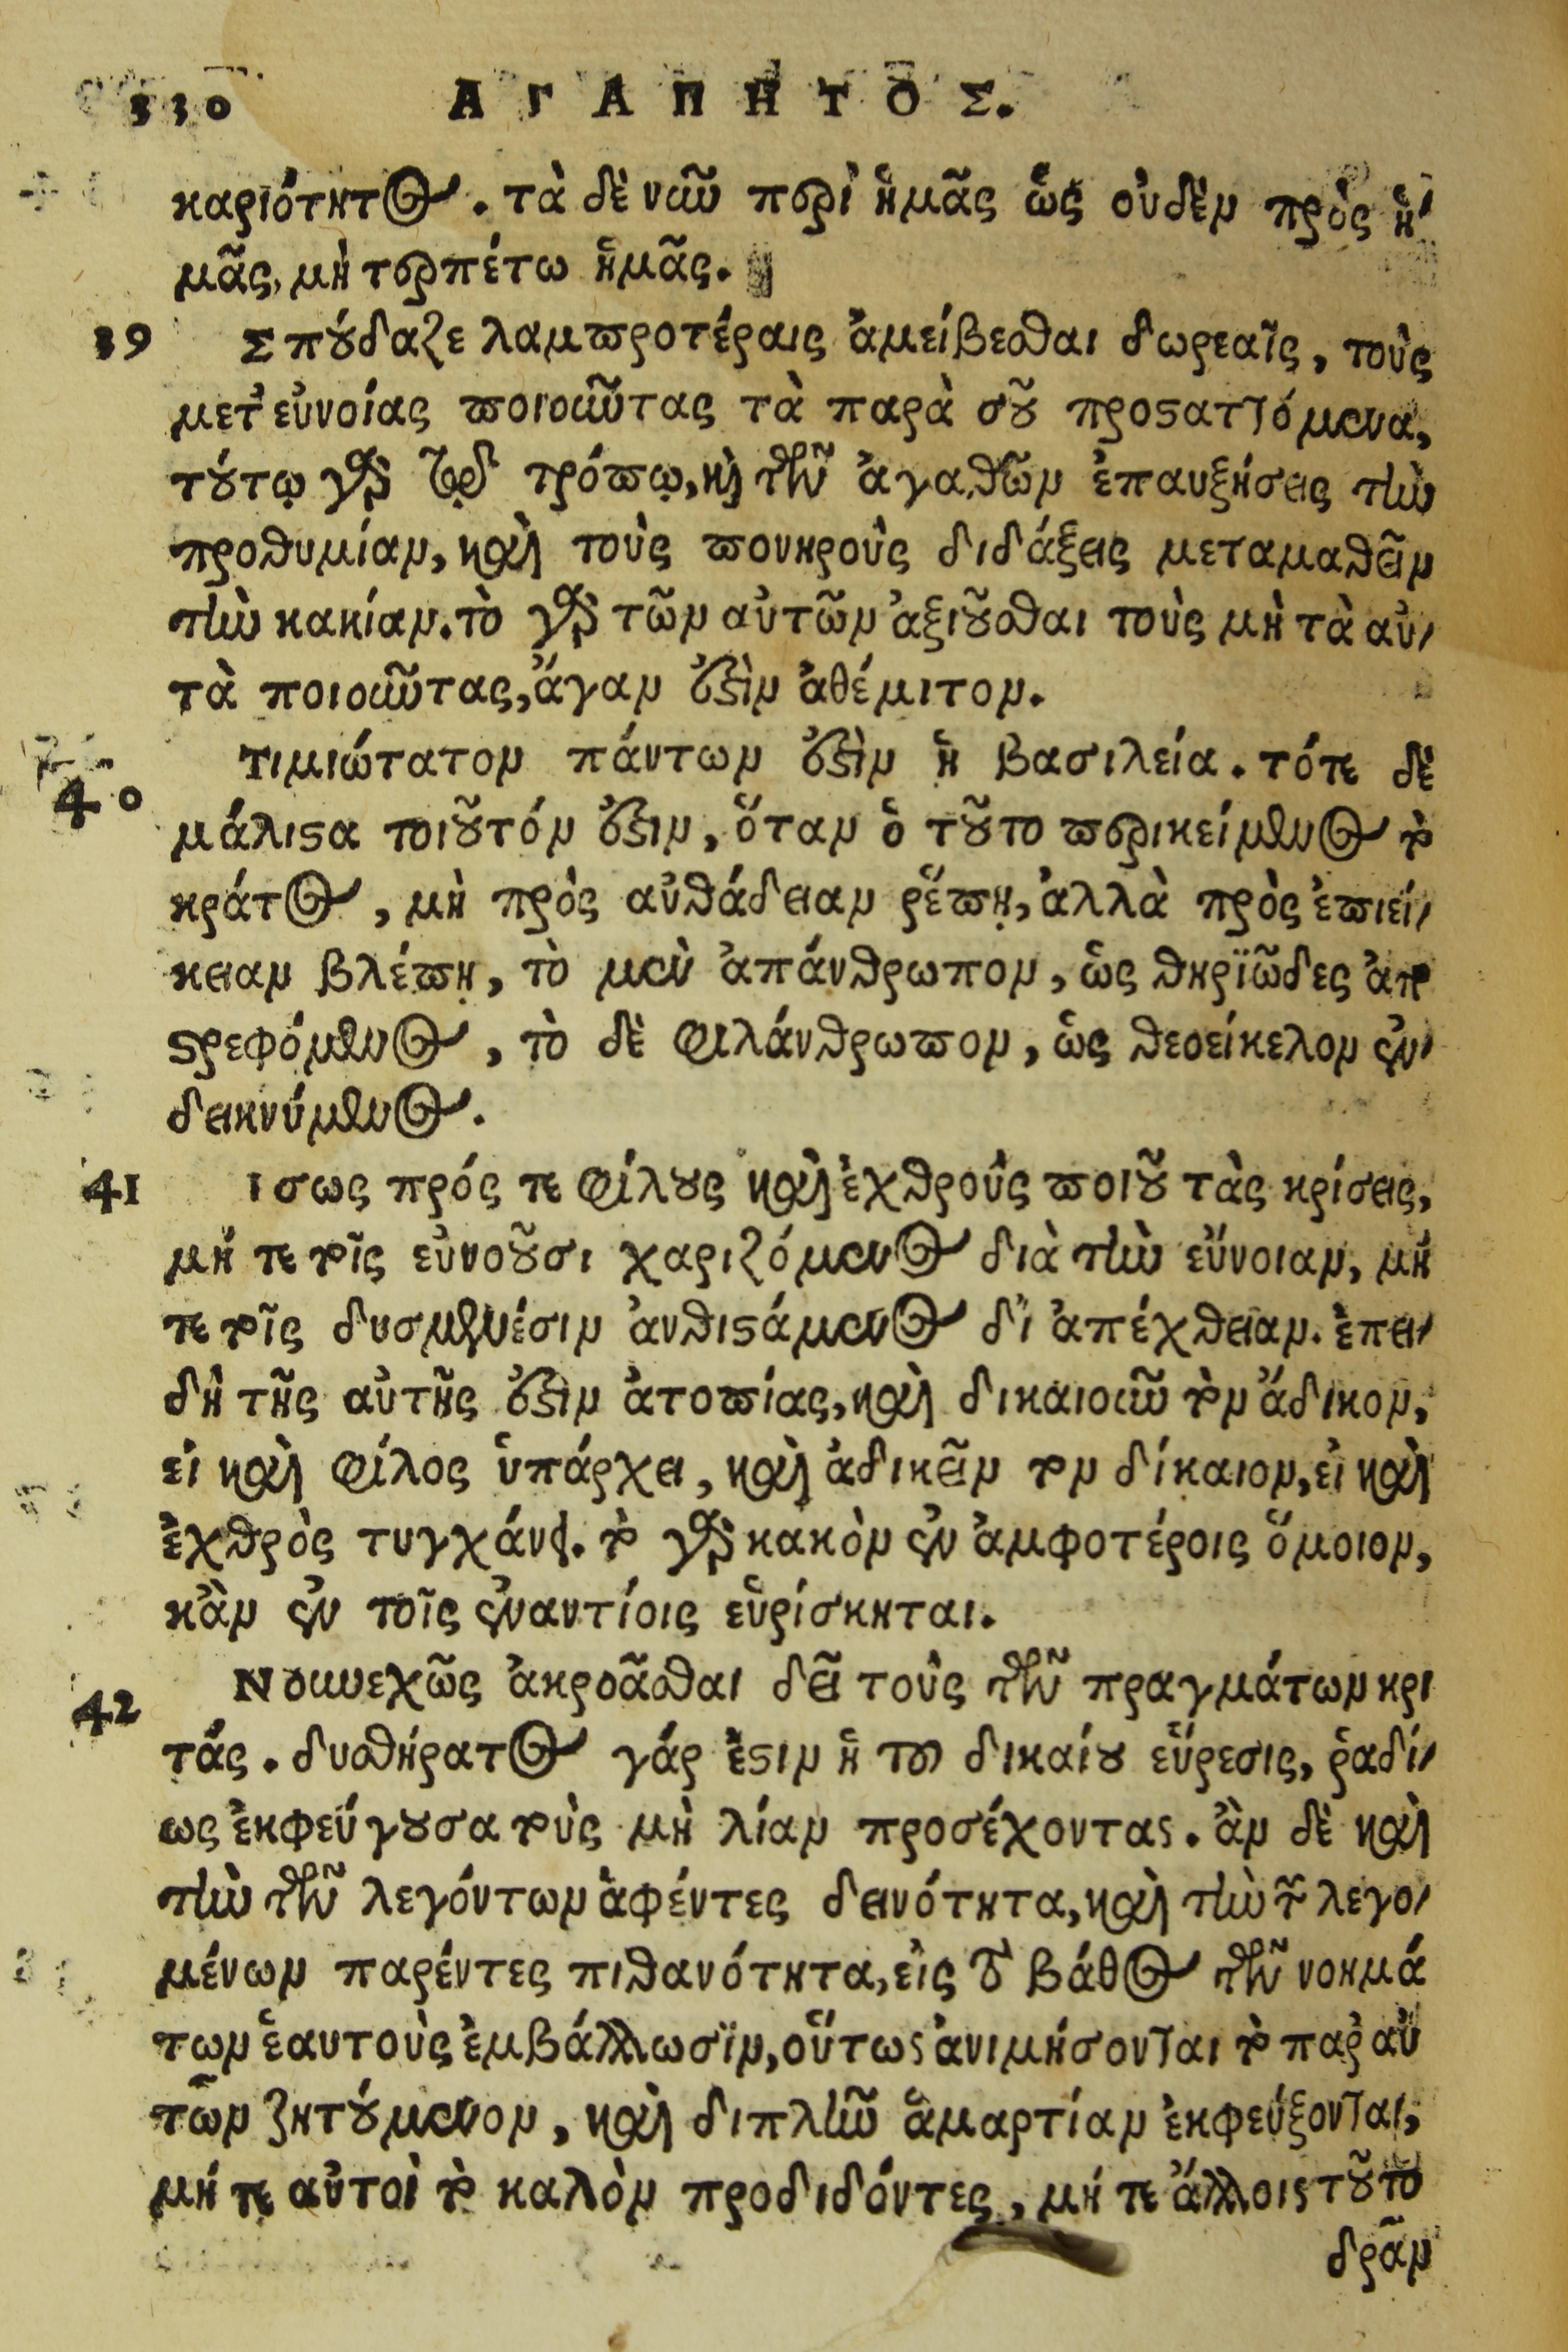 330 ΑΓΑΠΗΤΟΣ.
καριότητος. τὰ δὲ νῦν περὶ ἡμᾶς ὡς οὐδὲν πρὸς ἡ-
μᾶς, μὴ τερπέτω ἡμᾶς.
39 Σπούδαζε λαμπροτέραις ἀμείβεσθαι δωρεαῖς, τοὺς
μετ' εὐνοίας ποιοῦντας τὰ παρὰ σοῦ προσαττόμενα,
τούτῳ γὰρ τῷ τρόπῳ, καὶ τῶν ἀγαθῶν ἐπαυξήσεις τὴν
προθυμίαν, καὶ τοὺς πονηροὺς διδάξεις μεταμαθεῖν
τὴν κακίαν. τὸ γὰρ τῶν αὐτῶν ἀξιοῦσθαι τοὺς μὴ τὰ αὐ-
τὰ ποιοῦντας, ἄγαν ἐστὶν ἀθέμιτον.
40 Τιμιώτατον πάντων ἐστὶν ἡ βασιλεία. τότε δὲ
μάλιστα τοιοῦτόν ἐστιν, ὅταν ὁ τοῦτο περικείμενος τὸ
κράτος, μὴ πρὸς αὐθάδειαν ῥέπῃ, ἀλλὰ πρὸς ἐπιεί-
κειαν βλέπῃ, τὸ μὲν ἀπάνθρωπον, ὡς θηριῶδες ἀπο
στρεφόμενος, τὸ δὲ φιλάνθρωπον, ὡς θεοείκελον ἐν-
δεικνύμενος.
41 Ισως πρός τε φίλους καὶ ἐχθροὺς ποιοῦ τὰς κρίσεις,
μή τε τοῖς εὐνοοῦσι χαριζόμενος διὰ τὴν εὔνοιαν, μή
τε τοῖς δυσμενέσιν ἀνθιστάμενος δι' ἀπέχθειαν. ἐπει-
δὴ τῆς αὐτῆς ἐστὶν ἀτοπίας, καὶ δικαιοῦν τὸν ἄδικον,
εἰ καὶ φίλος ὑπάρχει, καὶ ἀδικεῖν τον δίκαιον, εἰ καὶ
ἐχθρὸς τυγχάνει. τὸ γὰρ κακὸν ἐν ἀμφοτέροις ὅμοιον,
κἂν ἐν τοῖς ἐναντίοις εὑρίσκηται.
42 Νουνεχῶς ἀκροᾶσθαι δεῖ τοὺς τῶν πραγμάτων κρι
τάς. δυσθήρατος γάρ ἐστιν ἡ τοῦ δικαίου εὕρεσις, ῥαδί-
ως ἐκφεύγουσα τοὺς μὴ λίαν προσέχοντας. ἂν δὲ καὶ
τὴν τῶν λεγόντων ἀφέντες δεινότητα, καὶ τὴν τῶν λεγο-
μένων παρέντες πιθανότητα, εἰς τὸ βάθος τῶν νοημά
των ἑαυτοὺς ἐμβάλλωσϊν, οὕτως ἀνιμήσονται τὸ παρ' αὐ
τῶν ζητούμενον, καὶ διπλῆν ἁμαρτίαν ἐκφεύξονται,
μή τε αὐτοὶ τὸ καλὸν προδιδόντες, μή τε ἄλλοις τοῦτο
δρᾶν